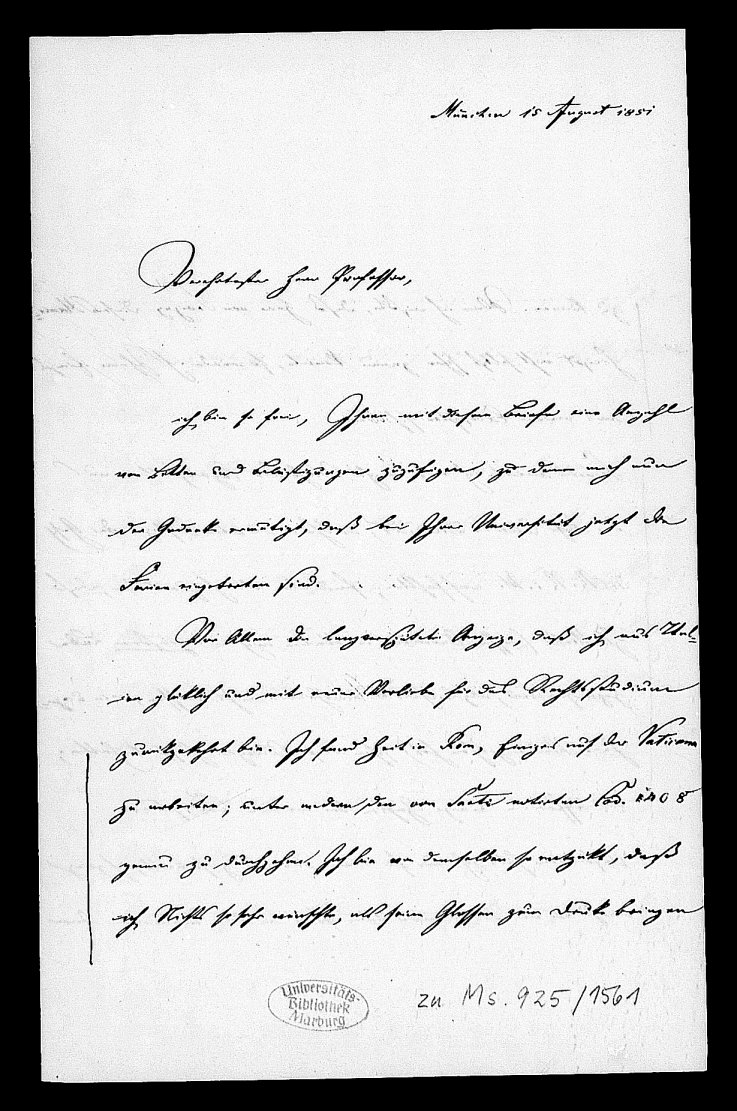 München 15 August 1851
Verehrtester Herr Professor,
ich bin so frei, Ihnen mit diesem Briefe eine Anzahl
von Bitten und Belästigungen zuzufügen, zu denen mich nun
der Gedanke ermutigt, daß bei Ihrer Universität jetzt die
Ferien eingetreten sind.
Vor Allem die langverspätete Anzeige, daß ich aus Ital-
ien glüklich und mit neuer Vorliebe für das Rechtsstudium
zurükgekehrt bin. Ich fand Zeit in Rom, Einiges auf der Vaticana
zu arbeiten; unter andern den von Sarti notirten Cod. 1408
genau zu durchgehen. Ich bin von demselben so entzükt, daß
ich Nichts so sehr wünschte, als seine Glossen zum Druke bringen
Universitäts-
Bibliothek
Marburg
zu Ms. 925/1561